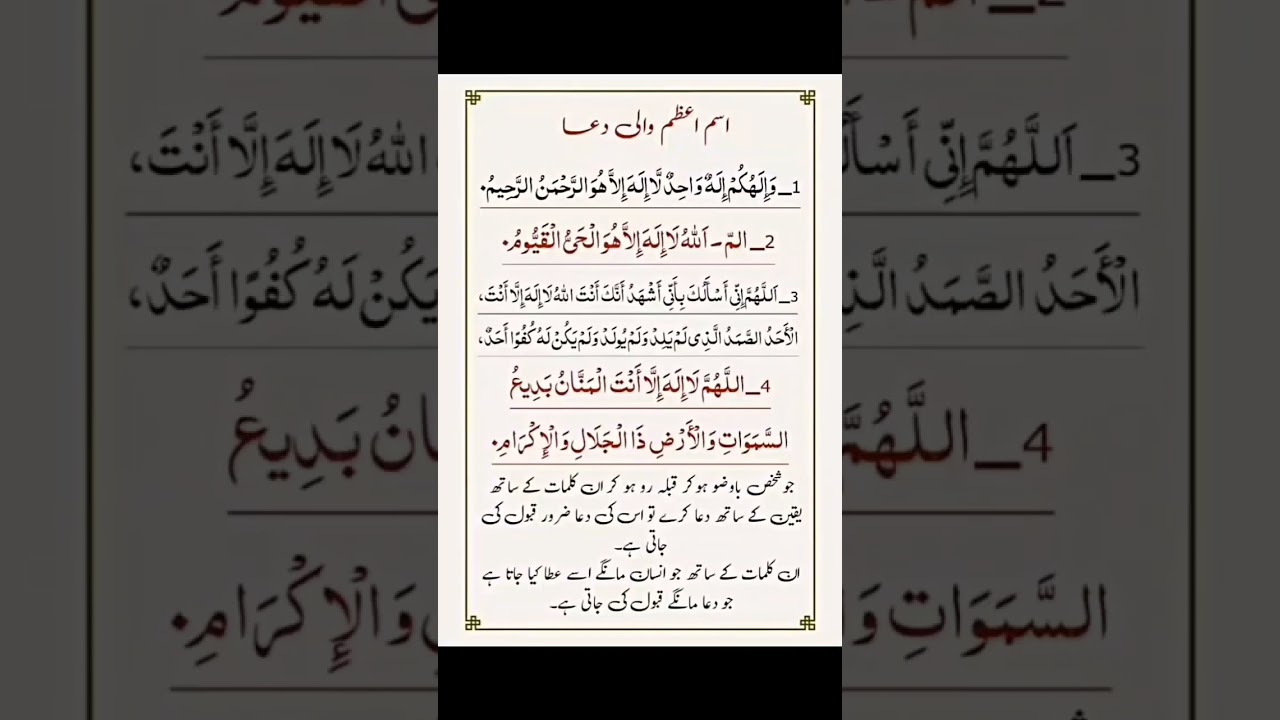 اسم اعظم والی دعا
1_ وَإِلَهُكُمْ إِلَهٌ وَاحِدٌ لَّا إِلَهَ إِلاَّ هُوَ الرَّحْمَنُ الرَّحِيمُ۰
2_ المّ - اَللهُ لَا إِلَهَ إِلاَّ هُوَ الْحَىُّ الْقَيُّومُ۰
3_ اَللَّهُمَّ إِنِّي أَسْأَلُكَ بِأَنِّي أَشْهَدُ أَنَّكَ أَنْتَ اللهُ لَا إِلَهَ إِلَّا أَنْتَ،
الْأَحَدُ الصَّمَدُ الَّذِى لَمْ يَلِدْ وَلَمْ يُولَدْ وَلَمْ يَكُنْ لَهُ كُفُوًا أَحَدٌ،
4_ اللَّهُمَّ لَا إِلَهَ إِلَّا أَنْتَ الْمَنَّانُ بَدِيعُ
السَّمَوَاتِ وَالْأَرْضِ ذَا الْجَلَالِ وَالْإِكْرَامِ۰
جو شخص باوضو ہو کر قبلہ رو ہو کر ان کلمات کے ساتھ
یقین کے ساتھ دعا کرے تو اس کی دعا ضرور قبول کی
جاتی ہے۔
ان کلمات کے ساتھ جو انسان مانگے اسے عطا کیا جاتا ہے
جو دعا مانگے قبول کی جاتی ہے۔